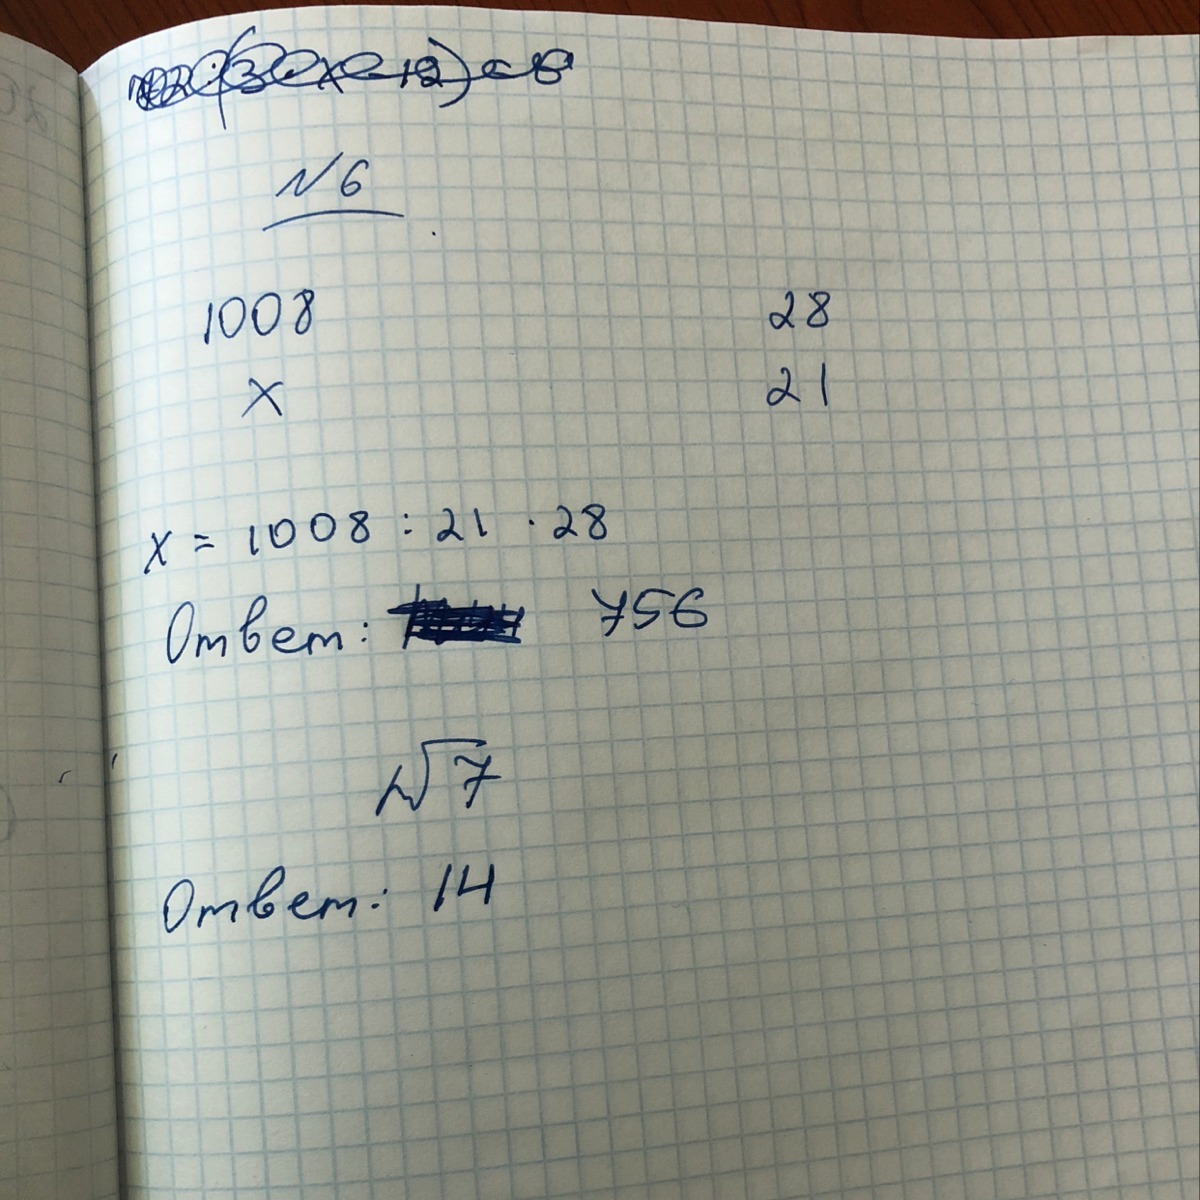 N6
1008 28
x 21
x = 1008 : 21 · 28
Ответ: 756
N7
Ответ: 14